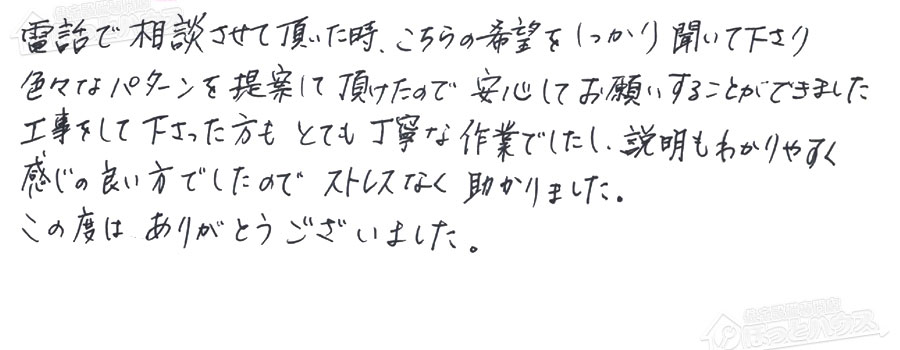 電話で相談させて頂いた時、こちらの希望をしっかり聞いて下さり
色々なパターンを提案して頂けたので安心してお願いすることができました
工事をして下さった方もとても丁寧な作業でしたし、説明もわかりやすく
感じの良い方でしたのでストレスなく助かりました。
この度はありがとうございました。
住宅設備専門店
ほっとハウス